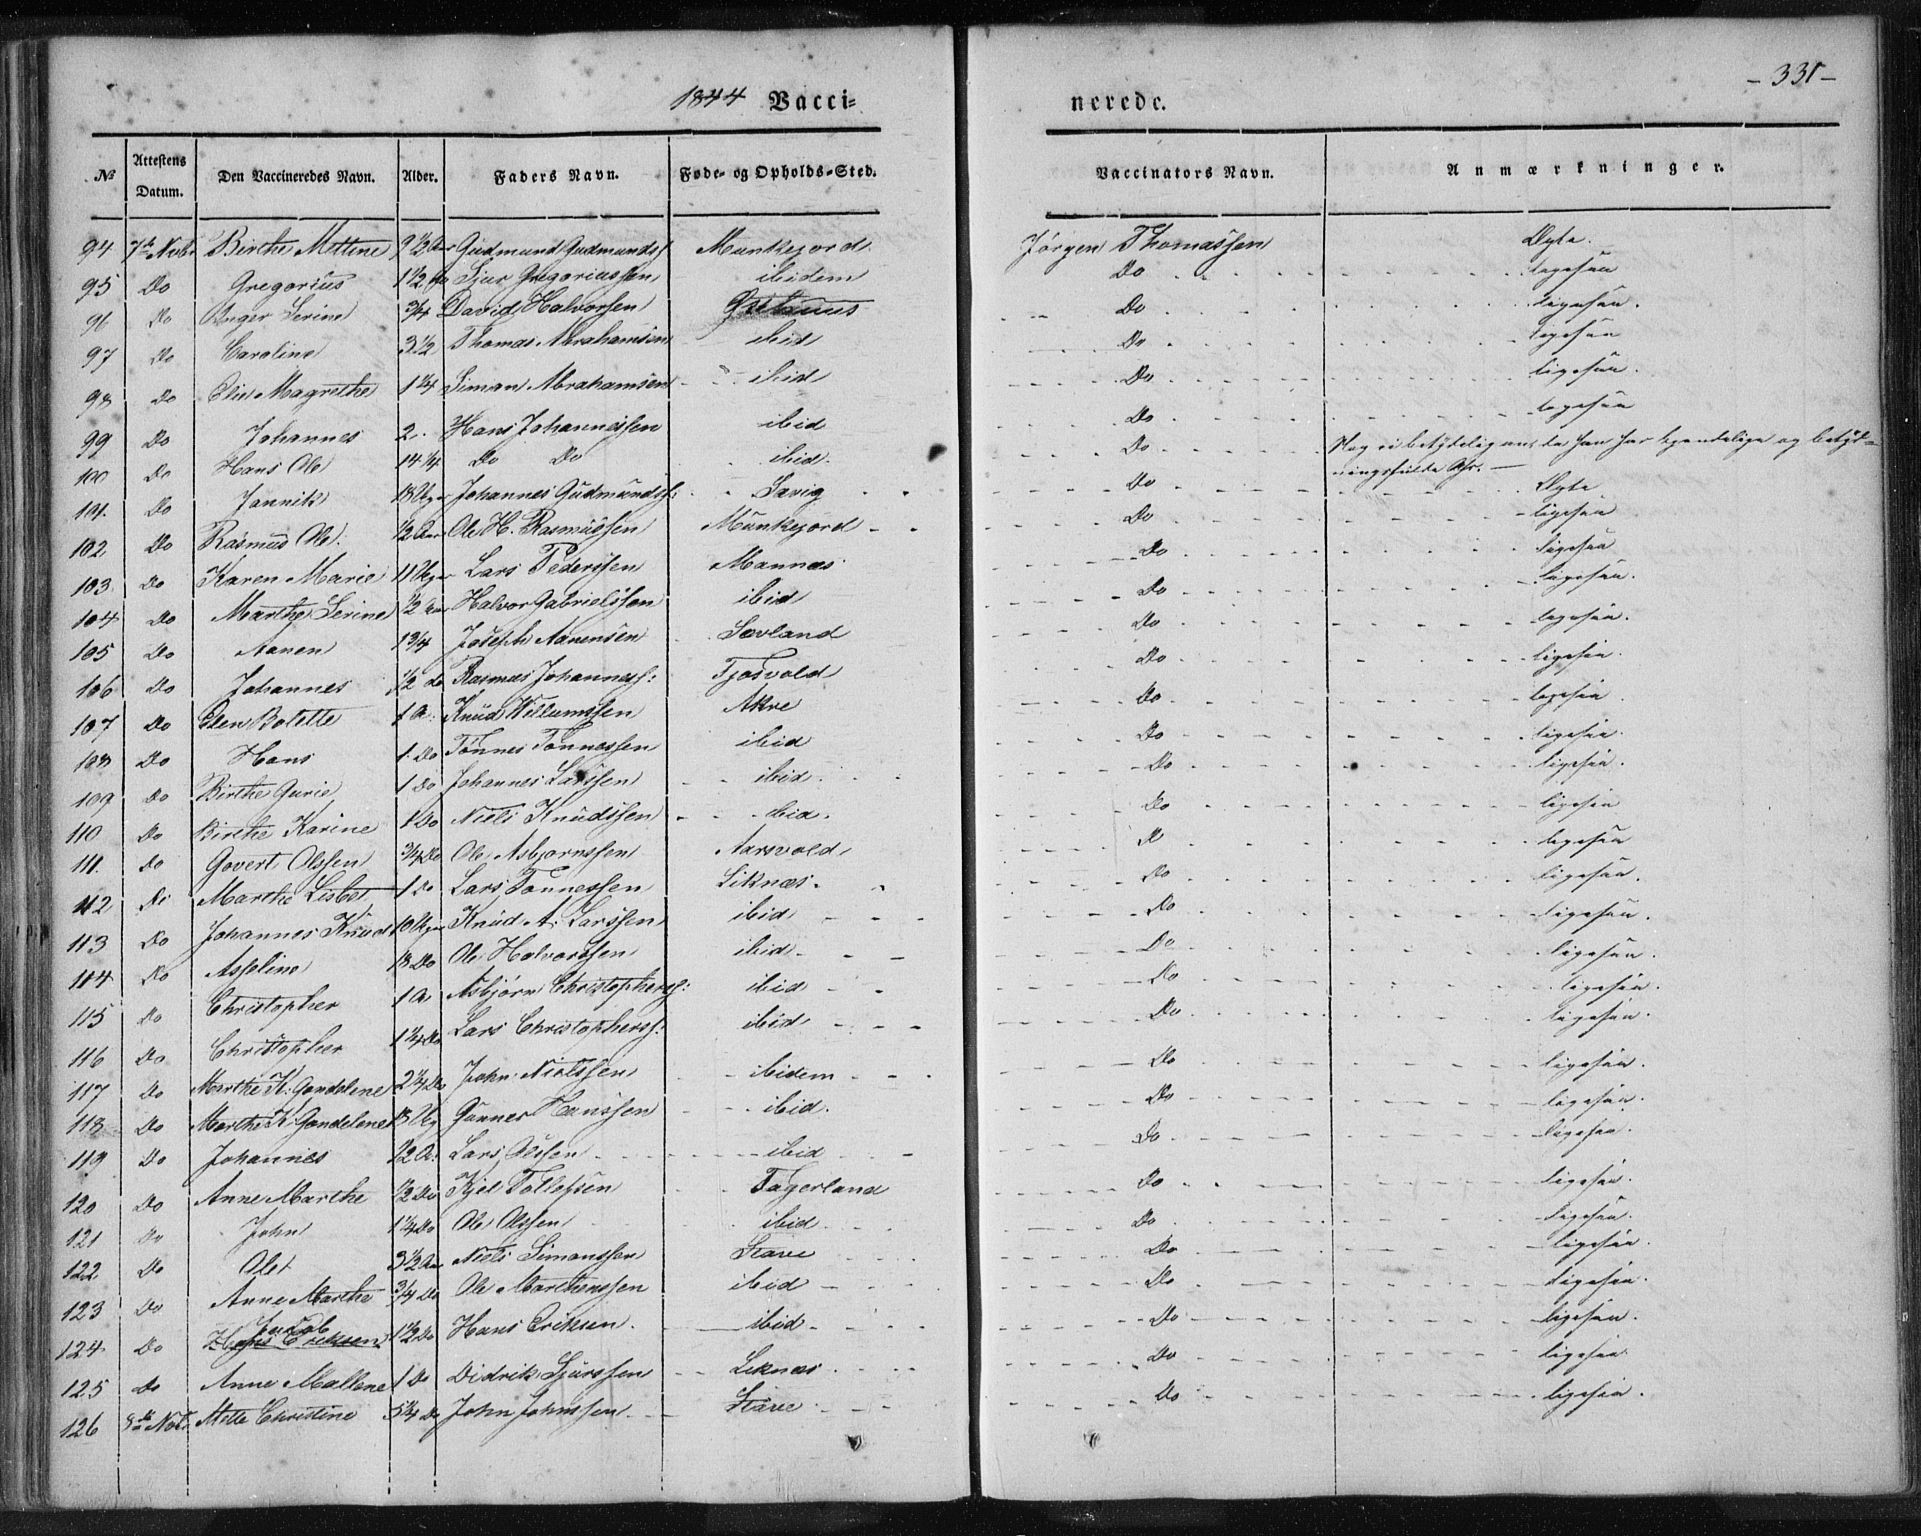 - 331 -
1844 Vacci= nerede.
№ Attestens Datum. Den Vaccineredes Navn. Alder. Faders Navn. Føde- og Opholds-Sted. Vaccinators Navn. Anmærkninger.
94 7de Novbr Birthe Mettine 9 1/2 Aar Gudmund Gudmunds: Munkejord Jørgen Thomassen Ægte.
95 Do Gregorius 1 1/2 Do Sjur Gregoriussen ibidem Do ligesaa
96 Do Inger Serine 3/4 David Halvorsen Do ligesaa.
97 Do Caroline 3 1/2 Thomas Abrahamsen ibid Do ligesaa
98 Do Magrethe 1 1/4 Simon Abrahamsen ibid Do ligesaa.
99 Do Johannes 2. Hans Johannessen ibid Do ligesaa
100 Do Hans Ole 14 1/4 Do Do ibid. Do
101. Do Jannik 18 Uger Johannes Gudmunds: Sævig Do Ægte
102 Do Rasmus Ole. 1/2 Aar Ole H. Rasmussen Munkejord Do ligesaa
103 Do Karen Marie 11 Uger Lars Pederssen Mannæs Do ligesaa
104 Do Marthe Serine 1/2 Aar Halvor Gabrielssen ibid Do ligesaa.
105 Do Aanen 1 3/4 Joseph Aanensen Sævland Do ligesaa.
106 Do Johannes 1/2 Do Rasmus Johanness: Tjosvold Do ligesaa.
107 Do Elen Bolette 1 A. Knud Willumssen Akre Do ligesaa.
108 Do Hans 1 Do Tønnes Tønnessen ibid Do ligesaa.
109 Do Birthe Gurie 1 Do Johannes Larssen ibid. Do ligesaa.
110 Do Birthe Karine 1 Do Niels Knudssen ibid. Do ligesaa
111. Do Govert Olssen 3/4 Do Ole Asbjørnssen Aarsvold Do ligesaa
112 Do Marthe Lisbet 1 Do Lars Tønnessen Liknæs. Do ligesaa.
113 Do Johannes Knud 10 Uger Knud A. Larssen ibid Do ligesaa.
114 Do Asseline 18 Do Ole Halvorssen ibid. Do ligesaa.
115 Do Christopher 1 A. Asbjørn Christophers: ibid Do ligesaa.
116 Do Christopher 1 1/4 Do Lars Christophers: ibid Do ligesaa.
117 Do Marthe K. Gondelene 2 1/4 Do John Nielssen ibidem Do ligesaa.
118 Do Marthe K. Gondelene 18 Ug Gunner Hanssen ibid. Do ligesaa.
119 Do Johannes 12 A. Lars Olssen ibid Do ligesaa.
120 Do Anne Marthe 1/2 Do Kjel Tollefsen Fagerland Do ligesaa.
121 Do John 1 1/4 Do Ole Olssen ibid Do ligesaa.
122 Do Ole 3 1/2 Aar Niels Simonssen Stave Do ligesaa.
123 Do Anne Marthe 3/4 Do Ole Marthenssen ibid Do ligesaa.
124 Do Jacob Hans Eriksen 1 1/2 Do Hans Eriksen. ibid Do ligesaa.
125 Do Anne Mallene 1 Do Didrik Sjurssen Liknæs. Do ligesaa.
126 8de Novb. Mette Christine 5 1/4 Do John Johnssen Stave Do ligesaa.